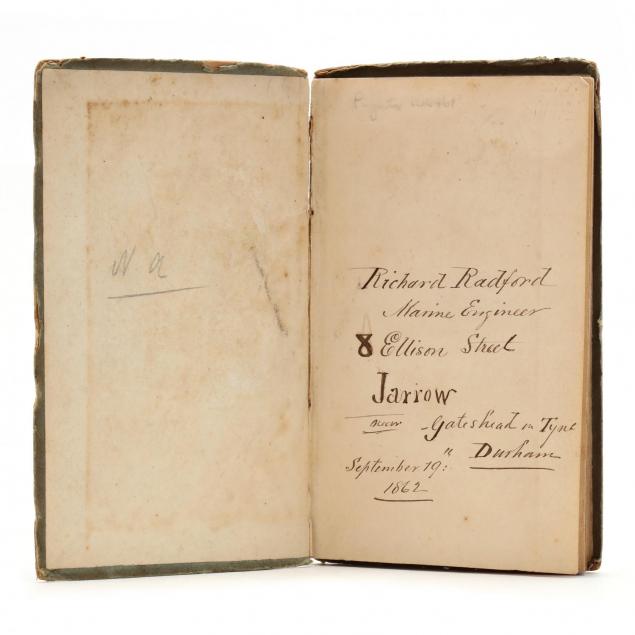 N a
Richard Radford
Marine Engineer
8 Ellison Street
Jarrow
near Gateshead on Tyne
September 19th Durham
1862